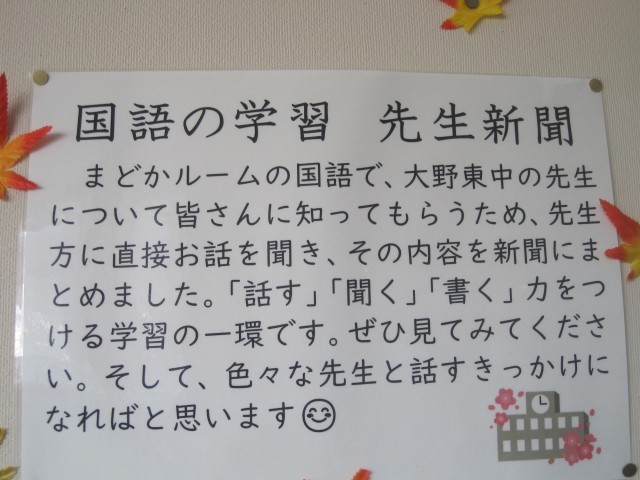 国語の学習　先生新聞
　まどかルームの国語で、大野東中の先生
について皆さんに知ってもらうため、先生
方に直接お話を聞き、その内容を新聞にま
とめました。「話す」「聞く」「書く」力をつ
ける学習の一環です。ぜひ見てみてくださ
い。そして、色々な先生と話すきっかけに
なればと思います😊